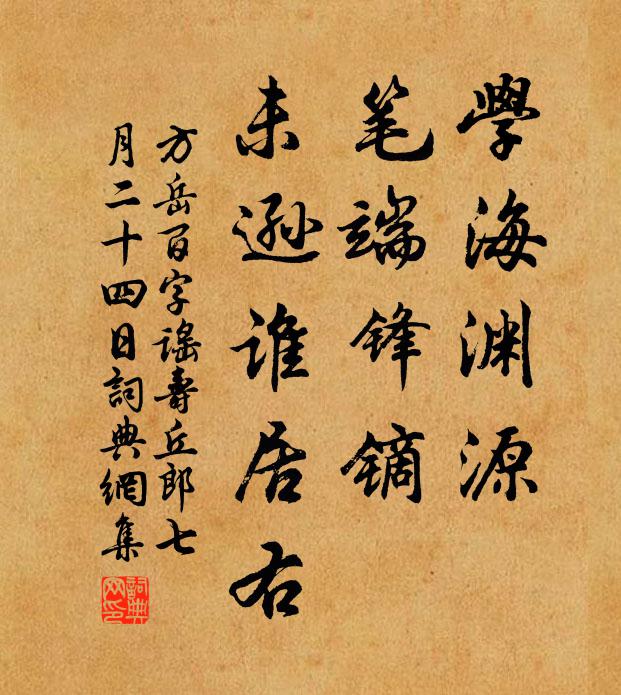 學海渊源
笔端锋镝
未逊谁居右
方岳百字谣壽丘郎七
月二十四日詞典網集
詞典
网印